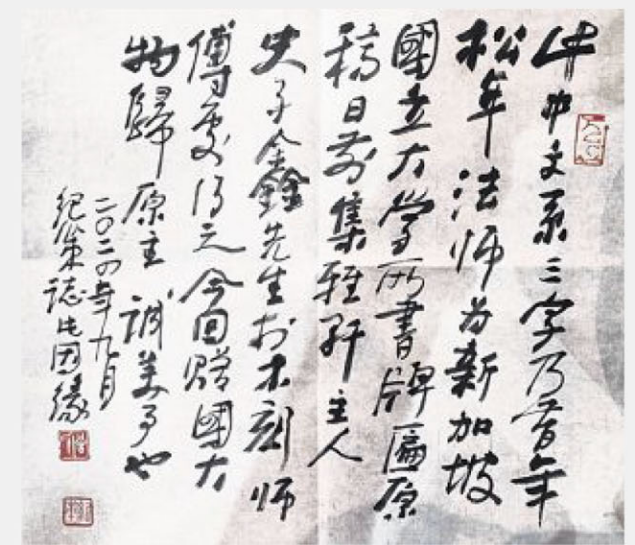 此中文系三字乃昔年
松年法师为新加坡
國立大學所書牌匾原
稿日前集雅軒主人
史子金鑫先生於木刻师
傅處得之今回贈國大
物歸原主誠美事也
二〇二四年九月
紀策誌此因緣